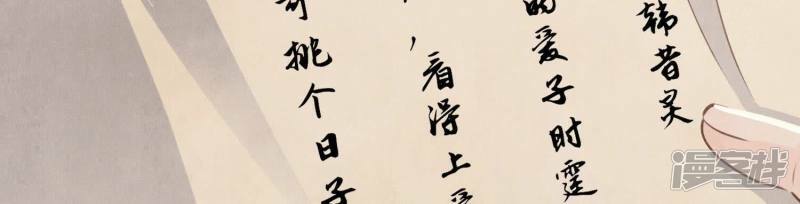 韩昔灵
的爱子时霆
，看得上
挑个日子
漫客栈